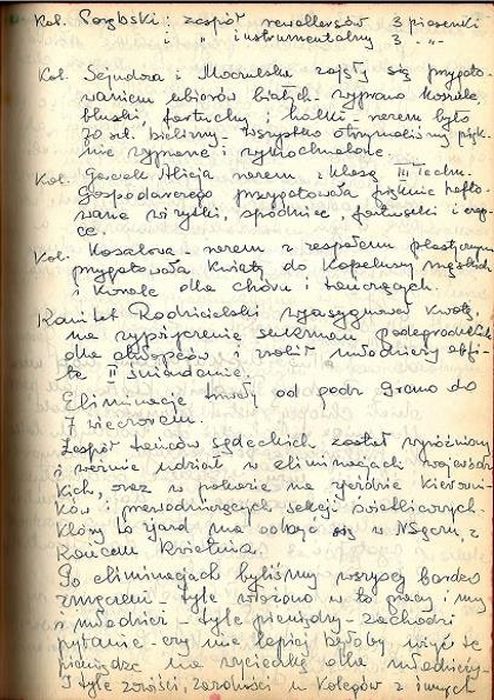 Kol. Porębski: zespół rewellersów 3 piosenki
i " instrumentalny 3 "
Kol. Sejudora i zajęły się przygoto-
waniem ubiorów białych - wyprano koszule,
bluski, fartuchy i halki - razem było
70 szt. bielizny - wszystko otrzymaliśmy pięk-
nie wyprane i wykrochmalone.
Kol. Gawlak Alicja razem z klasą III Techn.
Gospodarczego przygotowała pięknie hafto-
wane wizytki, spódnice, fartuszki i
Kol. Kosalowa - razem z zespołem plastycznym
przygotowała kwiaty do kapeluszy męskich
i korale dla chóru i tańczących.
Komitet Rodzicielski wyasygnował kwotę,
na wypożyczenie sukman podegrodzkich
dla chłopców i zrobił młodzieży obfi-
te II śniadanie.
Eliminacje trwały od godz 9 rano do
7 wieczorem.
Zespół tańców sądeckich został wyróżniony
i weźmie udział w eliminacjach wojewódz-
kich, oraz w pokazie na zjeździe kierowni-
ków i przewodniczących sekcji świetlicowych.
Który to zjazd ma odbyć się w NSączu, z
końcem kwietnia.
Po eliminacjach byliśmy wszyscy bardzo
zmęczeni - tyle włożono w to pracy i my
i młodzież - tyle pieniędzy - zachodzi
pytanie - czy nie lepiej byłoby użyć te
pieniądze na wycieczkę dla młodzieży -
I tyle zazdrości u Kolegów z innych